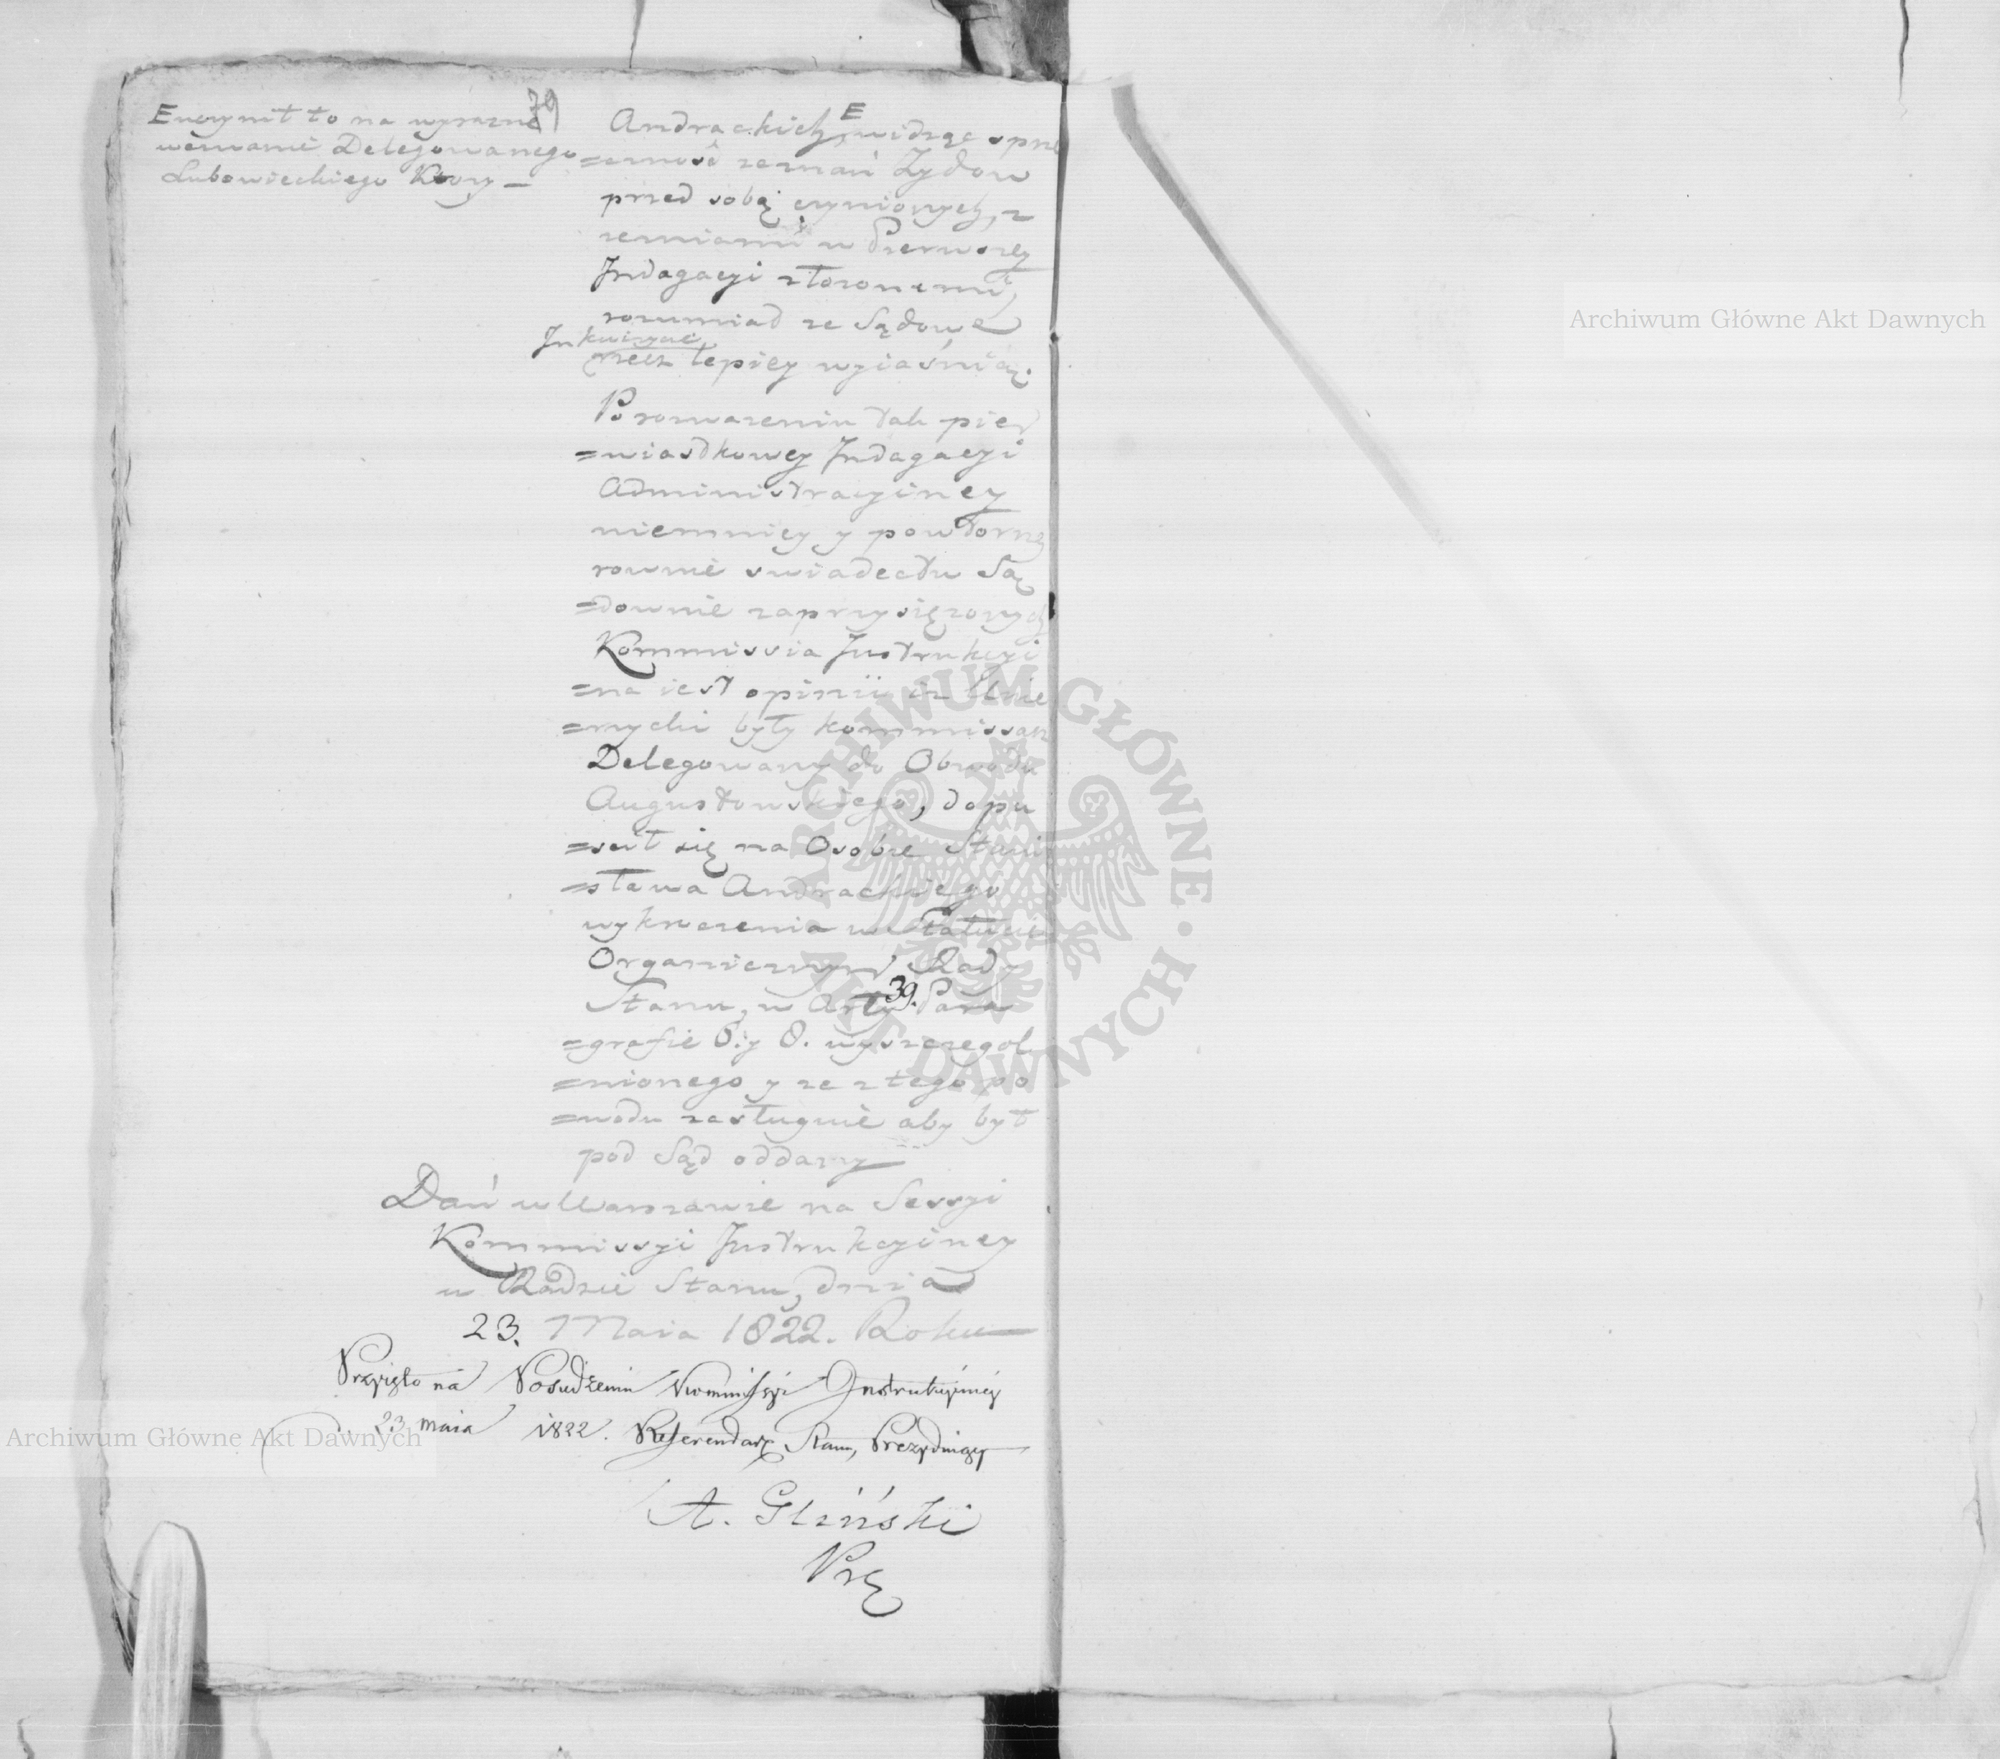 79
E uczynił to na wyrazne
wezwanie Delegowanego
Lubowieckiego Ktory —
Andrackich, E widząc sprze
=cznosć zeznań Zydow
przed sobą czynionych, z
zeznianmi w Pierwszey
Indagacyi złozonemi,
rozumiał ze Sądowe
Inkwizycie
rzecz lepiey wyiaśnią.
Po rozwazeniu tak pier
=wiastkowey Indagacyi
Administracyiney
niemniey y powtorney
rownie swiadectw Są
=downie zaprzysięzonych
Kommissia Instrukcyi
=na iest opinii iz Unie
=rzycki były kommissarz
Delegowany do Obwodu
Augustowskiego, dopu
=scił się na Osobie Stani
=sława Andrackiego
wykroczenia w Statucie
Organicznym Rady
Stanu, w Artle 39. Para
=grafie 6. y 8. wyszczegol
=nionego y ze z tego po
=wodu zasługuie aby był
pod Sąd oddany
Dań w Warszawie na Sessyi
Kommissyi Instrukcyiney
w Radzie Stanu, dnia
23. Maia 1822. Roku
Przyięto na Posiedzeniu Kommissyi Instrukcyiney
d. 23 maia 1822. Referendarz Stanu, Prezyduiący
A. Gliński
Prz
Archiwum Główne Akt Dawnych
Archiwum Główne Akt Dawnych
ARCHIWUM GŁÓWNE · AKT DAWNYCH ·